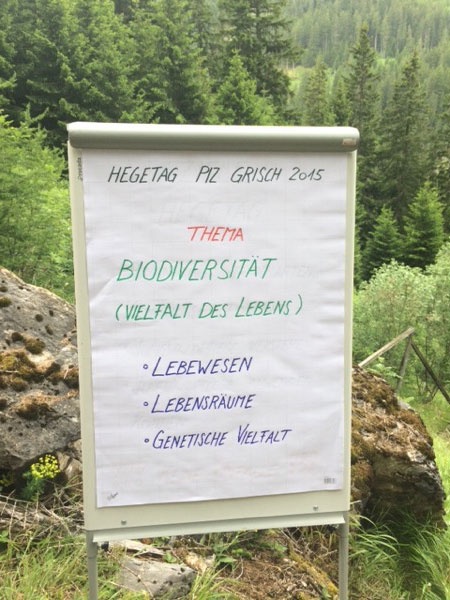 HEGETAG PIZ GRISCH 2015
THEMA
BIODIVERSITÄT
(VIELFALT DES LEBENS)
• LEBEWESEN
• LEBENSRÄUME
• GENETISCHE VIELFALT